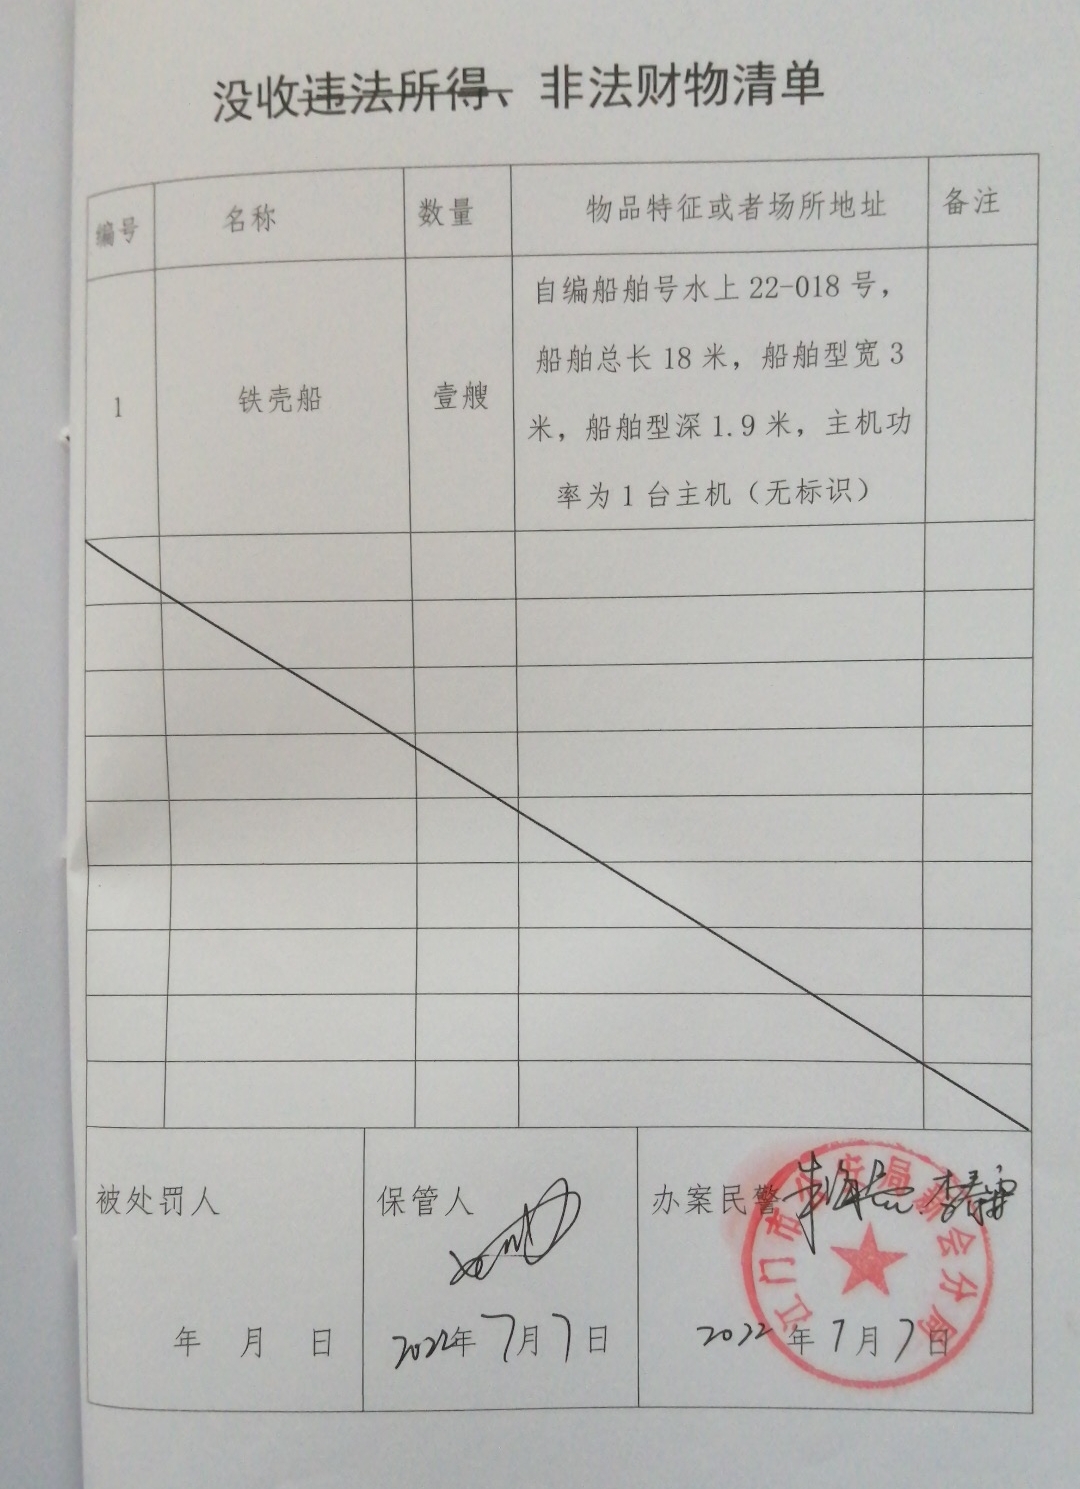 没收违法所得、非法财物清单
编号 名称 数量 物品特征或者场所地址 备注
1 铁壳船 壹艘 自编船舶号水上 22-018 号，
船舶总长 18 米，船舶型宽 3
米，船舶型深 1.9 米，主机功
率为 1 台主机（无标识）
被处罚人 保管人 办案民警
年 月 日 2022年 7月 7日 2022年 7月 7日
江门市公安局新会分局